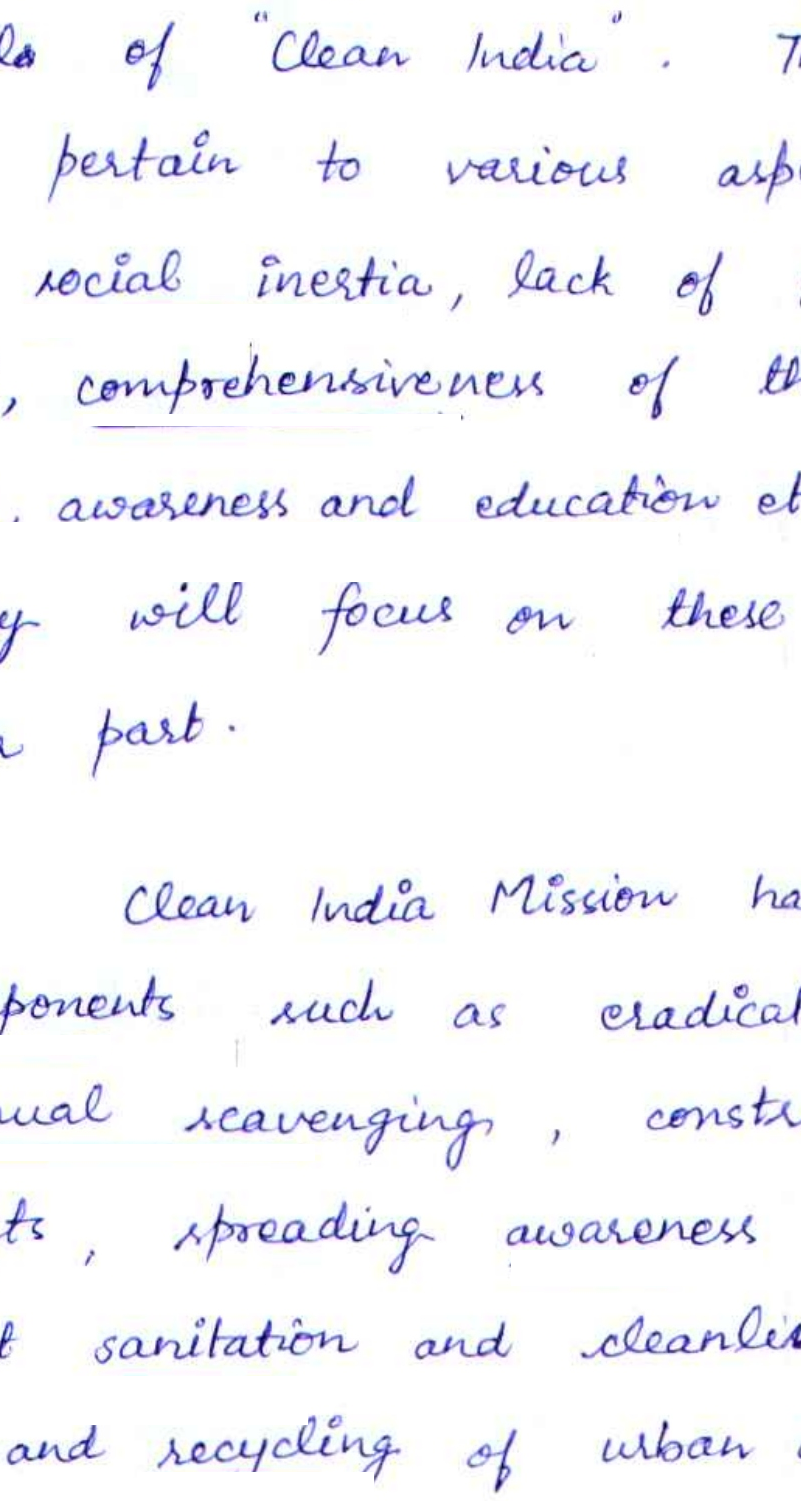 of "Clean India".
pertain to various
social inertia, lack of
, comprehensiveness of
. awareness and education
will focus on these
part.
Clean India Mission
such as
scavenging,
, spreading awareness
sanitation and
and recycling of urban